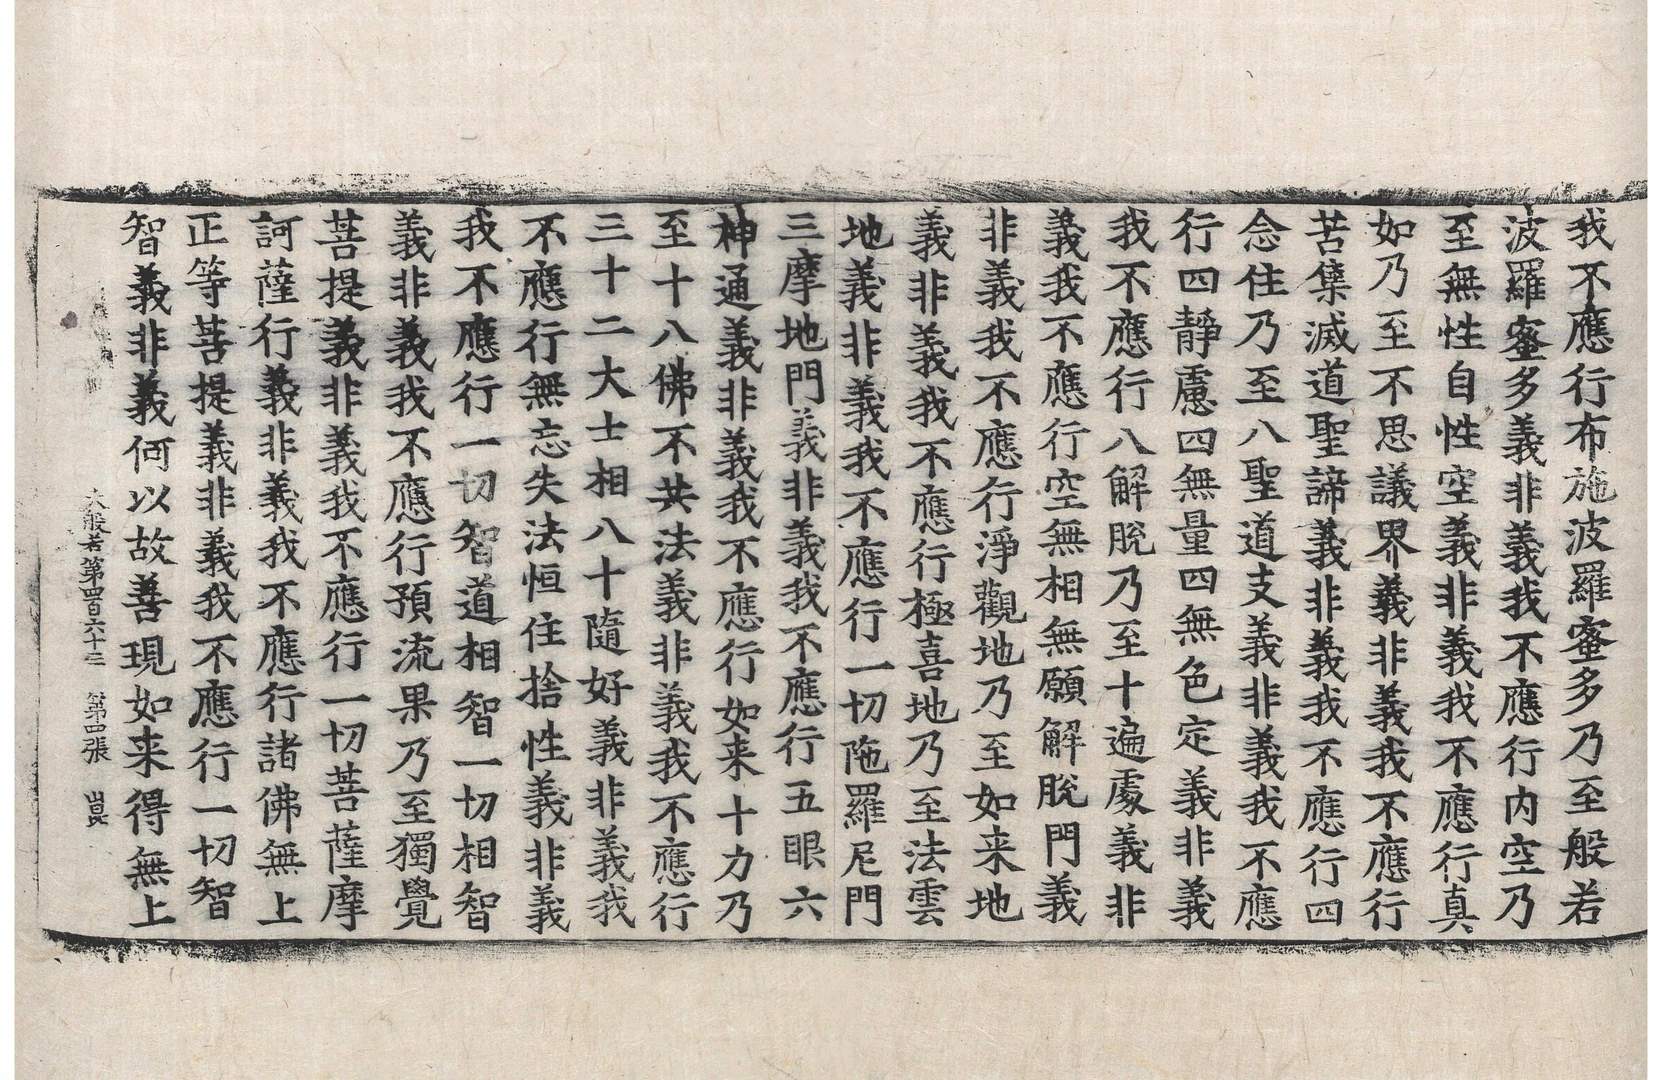 我不應行布施波羅蜜多乃至般若
波羅蜜多義非義我不應行内空乃
至無性自性空義非義我不應行真
如乃至不思議界義非義我不應行
苦集滅道聖諦義非義我不應行四
念住乃至八聖道支義非義我不應
行四靜慮四無量四無色定義非義
我不應行八解脫乃至十遍處義非
義我不應行空無相無願解脫門義
非義我不應行淨觀地乃至如来地
義非義我不應行極喜地乃至法雲
地義非義我不應行一切陁羅尼門
三摩地門義非義我不應行五眼六
神通義非義我不應行如来十力乃
至十八佛不共法義非義我不應行
三十二大士相八十隨好義非義我
不應行無忘失法恒住捨性義非義
我不應行一切智道相智一切相智
義非義我不應行預流果乃至獨覺
菩提義非義我不應行一切菩薩摩
訶薩行義非義我不應行諸佛無上
正等菩提義非義我不應行一切智
智義非義何以故善現如来得無上
大般若第四百六十三 第四張 崑